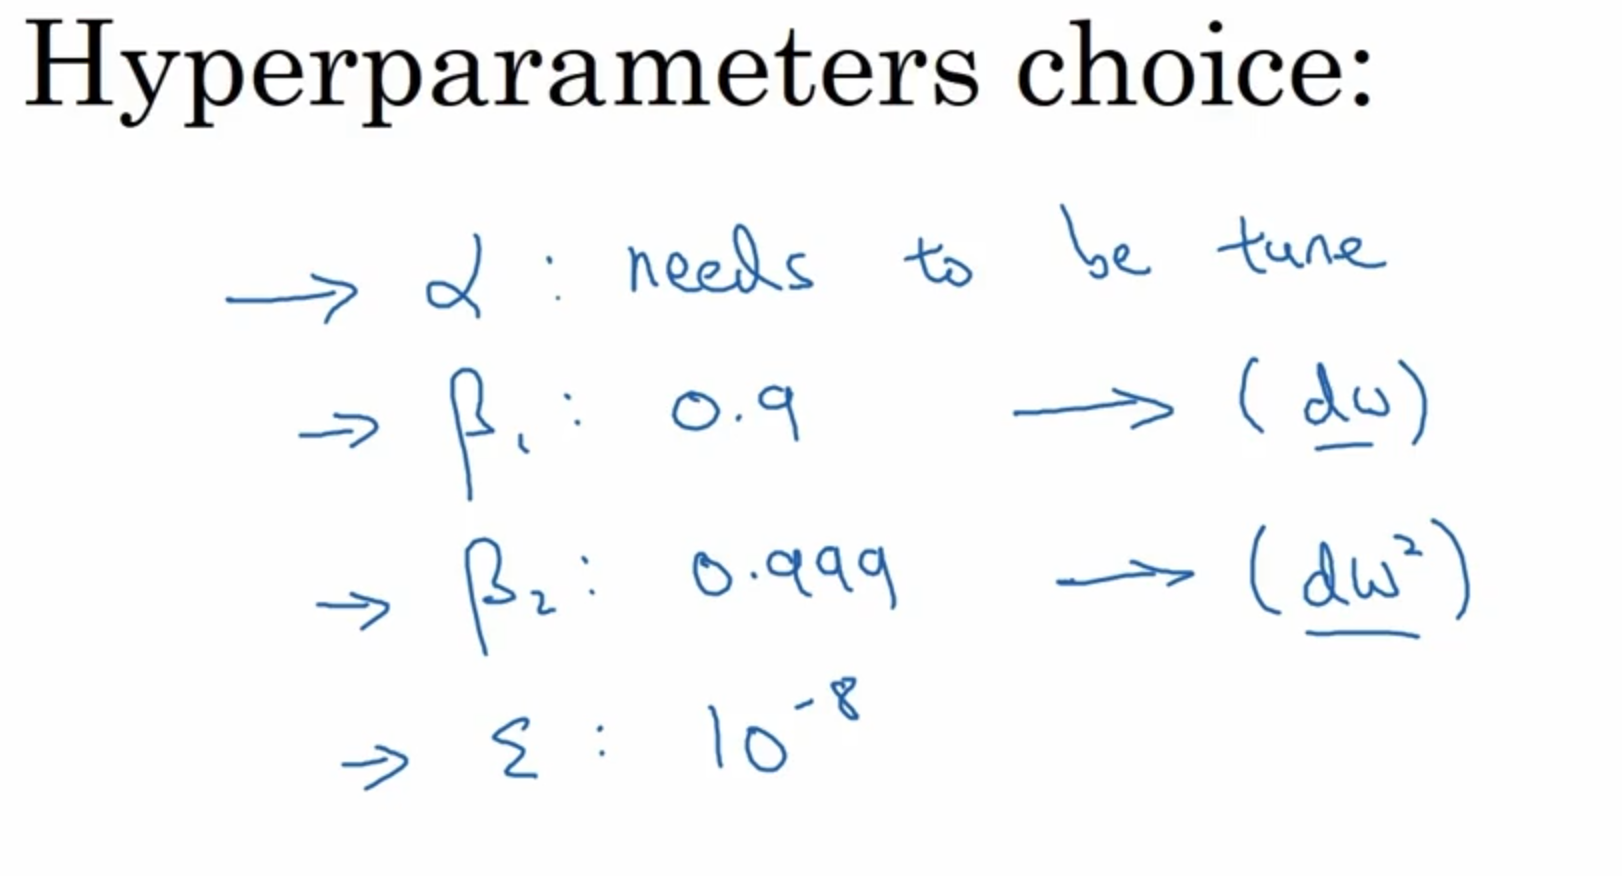 Hyperparameters choice:
→ α : needs to be tune
→ β₁ : 0.9 → (dw)
→ β₂ : 0.999 → (dw²)
→ ε : 10⁻⁸